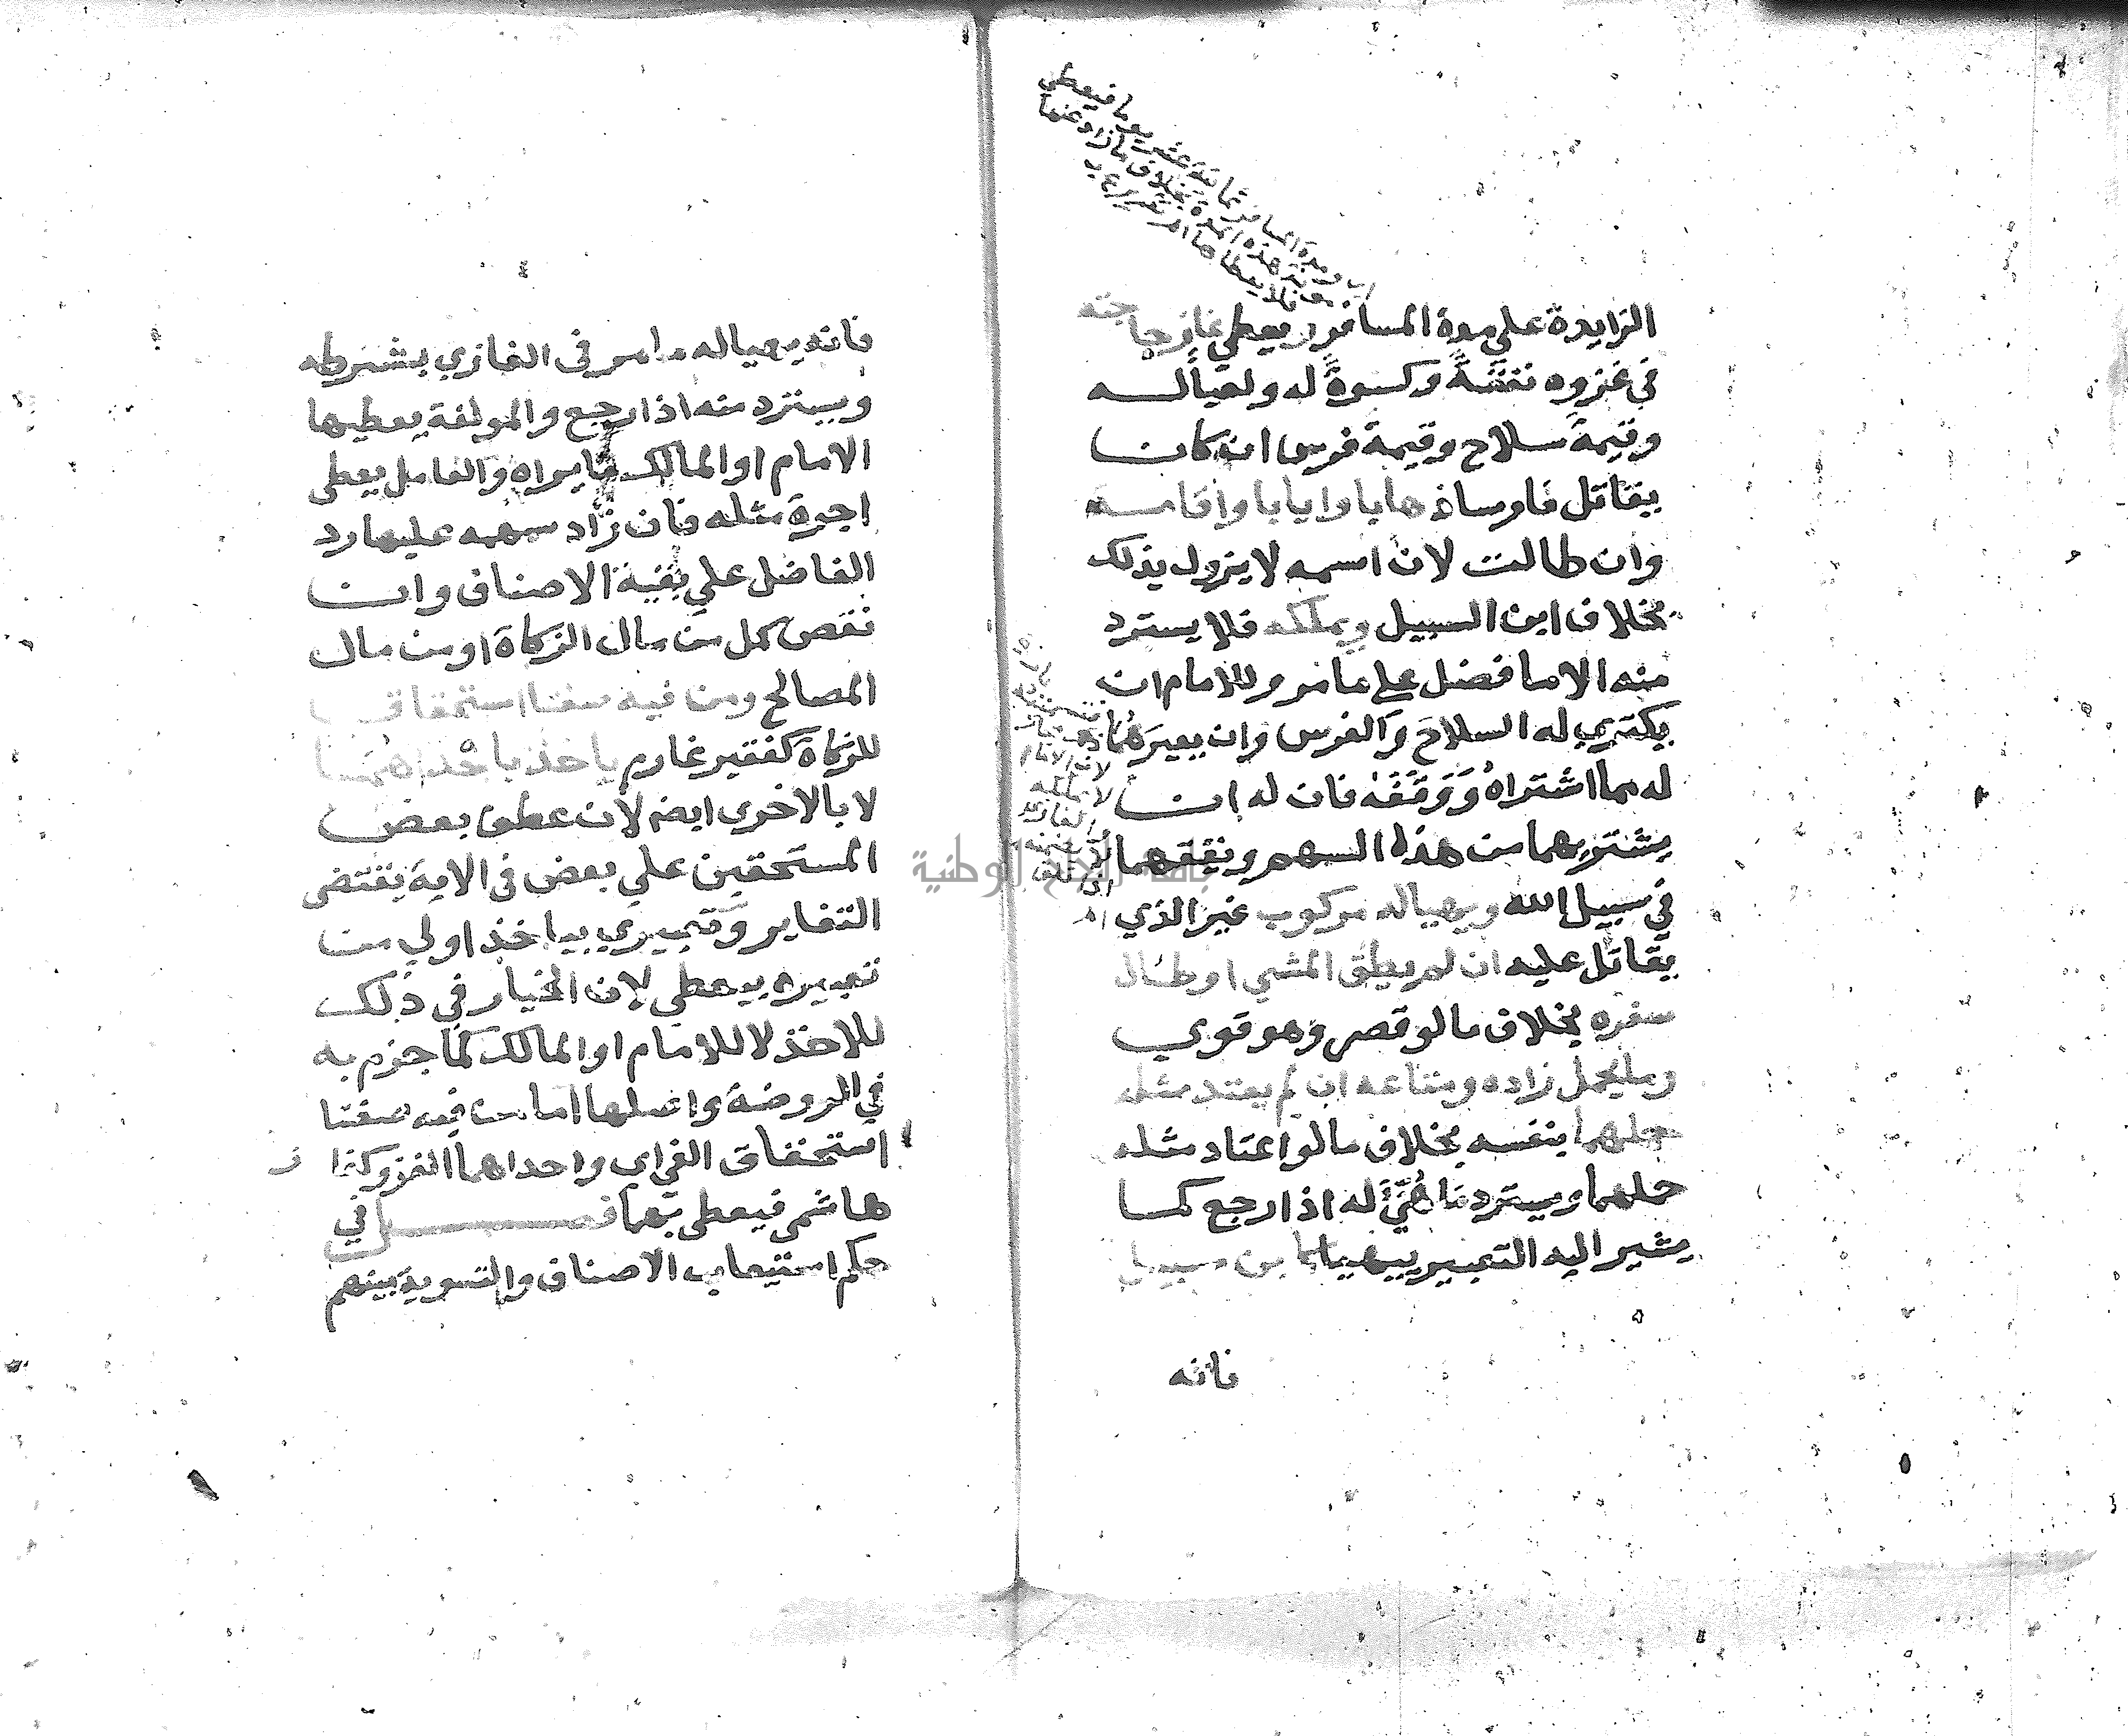 اي ومدة المسافر ثمانية عشر يوما فيعطى
مونة هذه المدة بخلاف ما زاد عنها
فلا يعطاها اهر تقرير
الزايدة علي مدة المسافر ويعطي غاز حاجته
في غزوه نفقةً وكسوةً له ولعياله
وقيمة سلاح وقيمة فرس ان كان
يقاتل فارسا ذهابا وايابا واقامسة
وان طالت لان اسمه لا يزول بذلك
بخلاف ابن السبيل ويملكه فلا يسترد
منه الا ما فضل علي ما مر وللامام ان
يكتري له السلاح والفرس وان يعيرهما
له مما اشتراهُ وَوَقَفَهُ فان له ان
يشتريهما من هذا السهم ويقفهما
في سبيل الله ويهيا له مركوب غير الذي
يقاتل عليه ان لم يطق المشي او طال
سفره بخلاف ما لو قصر وهو قوي
وما يحمل زاده ومتاعه ان لم يعتد مثله
حملهما بنفسه بخلاف ما لو اعتاد مثله
حملهما ويسترد ما هُيِّئَ له اذا رجع كما
يشير اليه التعبير بيهيا كابن سبيل
فانه
لان الامام
لا يملكه
الغازي
فانه يهيا له ما مر في الغازي بشرطه
ويسترد منه اذا رجع والمولفة يعطيها
الامام او المالك ما يراه والعامل يعطى
اجرة مثله فان زاد سهمه عليها رد
الفاضل علي بقية الاصناف وان
نقص كمل من مال الزكاة او من مال
المصالح ومن فيه صفتا استحقاق
للزكاة كفقير غارم ياخذ باحداهما
لا بالاخرى ايضا لان عطف بعض
المستحقين علي بعض في الاية يقتضى
التغاير وتعبيري بياخذ اولي من
تعبيره بيعطي لان الخيار في ذلك
للاخذ لا للامام او المالك كما جزم به
في الروضة واصلها اما من فيه صفتا
استحقاق الفي اي واحداهما الغزو كغاز
هاشمى فيعطى بهما فصل في
حكم استيعاب الاصناف والتسوية بينهم